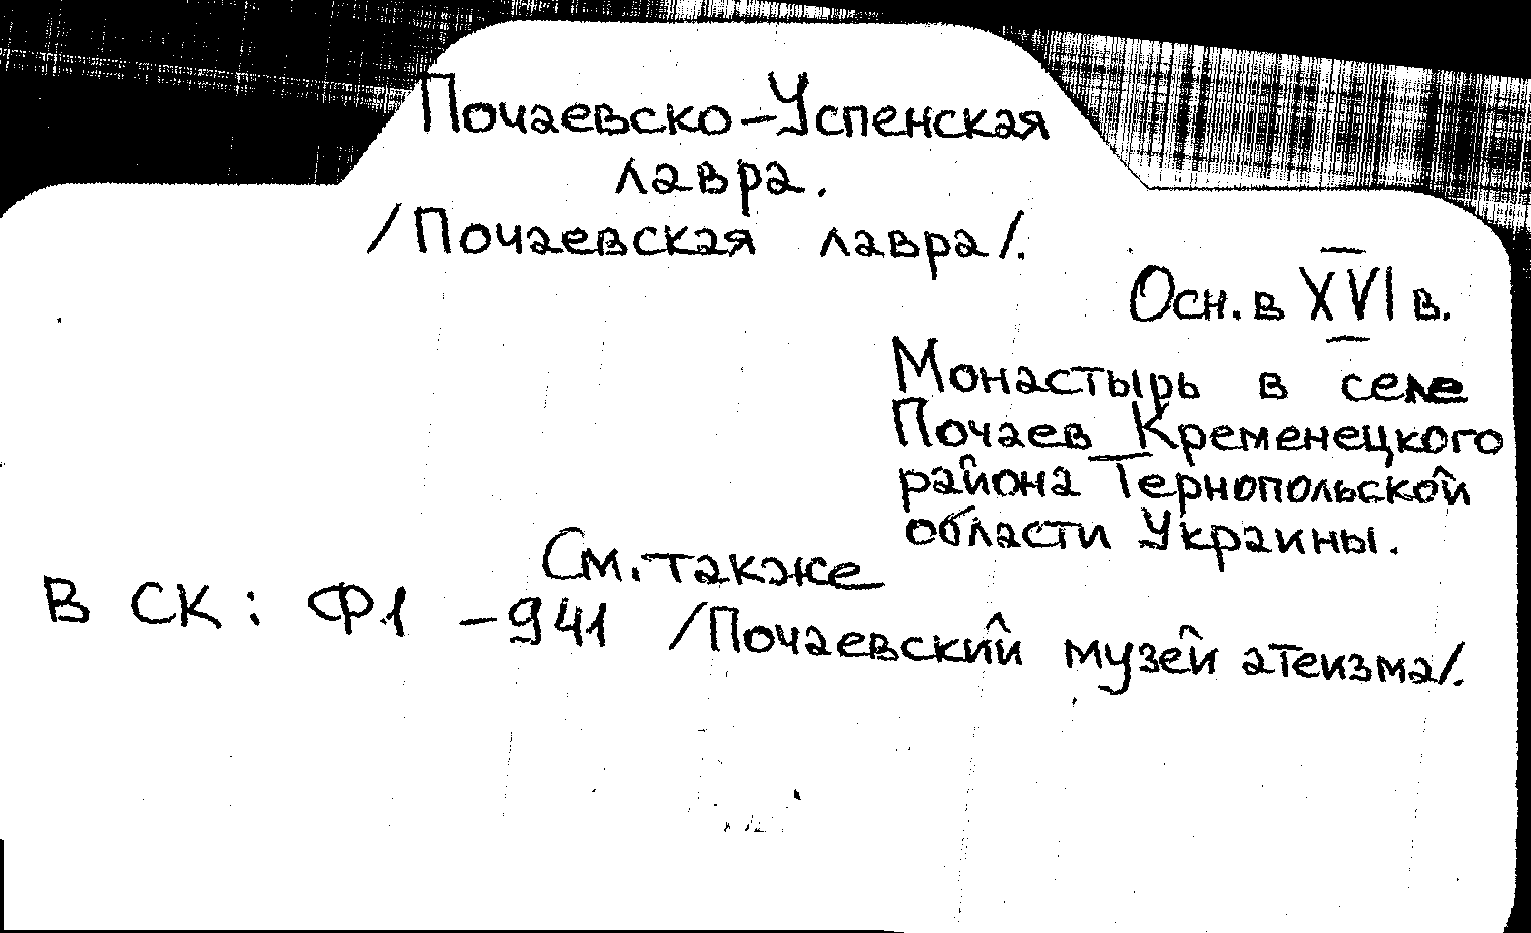 Почаевско-Успенская
лавра.
/Почаевская лавра/.
Осн. в XVI в.
Монастырь в селе
Почаев Кременецкого
района Тернопольской
области Украины.
См. также
В СК: Ф1 - 941 /Почаевский музей атеизма/.